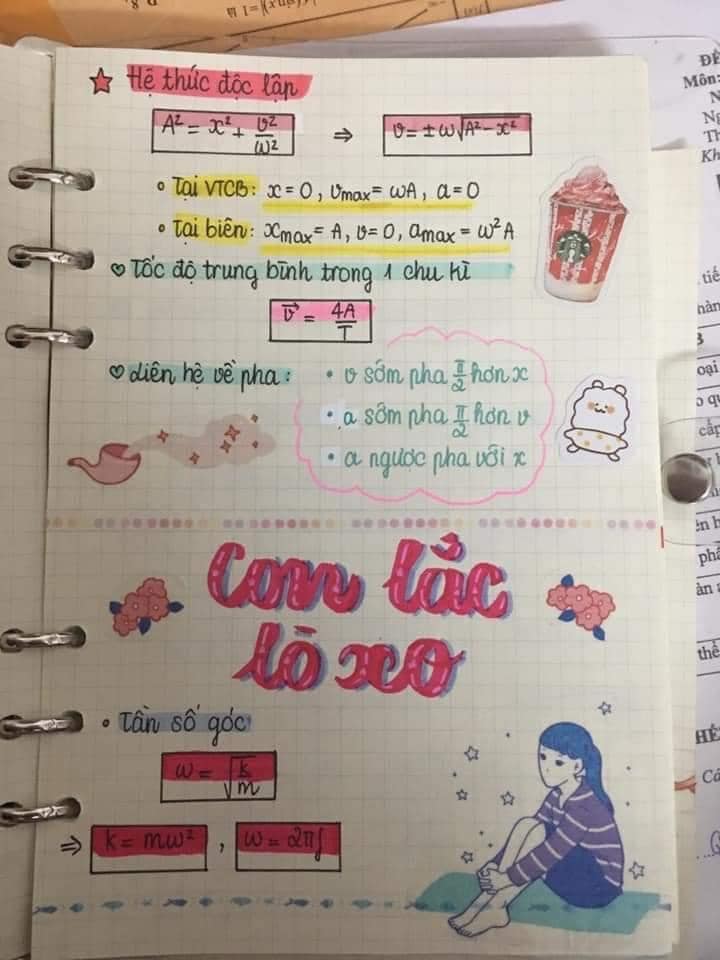 Hệ thức độc lập
A² = x² + v²/ω² ⇒ v = ±ω√(A² - x²)
• Tại VTCB: x = 0, vmax = ωA, a = 0
• Tại biên: xmax = A, v = 0, amax = ω²A
♡ Tốc độ trung bình trong 1 chu kì
v⃗ = 4A/T
♡ Liên hệ về pha:
• v sớm pha π/2 hơn x
• a sớm pha π/2 hơn v
• a ngược pha với x
Con lắc
lò xo
• Tần số góc
ω = √(k/m)
⇒ k = mω², ω = 2πf
ĐỀ
Môn: